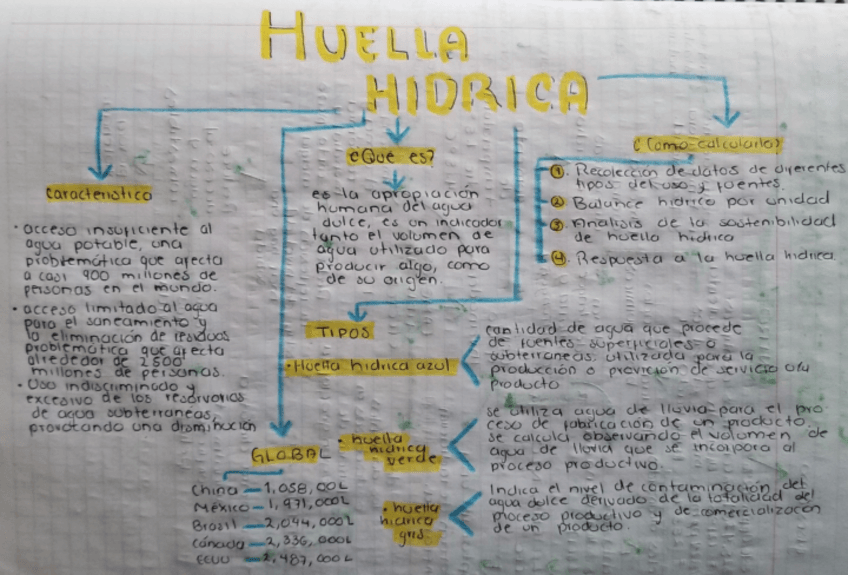 HUELLA
HIDRICA
¿Que es?
es la apropiación
humana del agua
dulce, es un indicador
tanto el volumen de
agua utilizado para
producir algo, como
de su origen.
¿Como calcularla?
1. Recolección de datos de diferentes
tipos del uso y fuentes.
2. Balance hidrico por unidad
3. Analisis de la sostenibilidad
de huella hidrica
4. Respuesta a la huella hidrica.
caracteristica
• acceso insuficiente al
agua potable, una
problemática que afecta
a casi 900 millones de
personas en el mundo.
• acceso limitado al agua
para el saneamiento y
la eliminación de residuos
problemática que afecta
alrededor de 2500
millones de personas.
• Uso indiscriminado y
excesivo de los reservorios
de agua subterraneas,
provocando una disminución
TIPOS
• Huella hidrica azul
cantidad de agua que procede
de fuentes superficiales o
subterraneas, utilizada para la
producción o provición de servicio o/u
producto
• huella
hidrica
verde
se utiliza agua de lluvia para el pro-
ceso de fabricación de un producto.
se calcula observando el volumen de
agua de lluvia que se incorpora al
proceso productivo.
• huella
hidrica
gris
Indica el nivel de contaminación del
agua dulce derivado de la totalidad del
proceso productivo y de comercialización
de un producto.
GLOBAL
China — 1,058,00L
México — 1,971,000L
Brazil — 2,044,000L
Cánada — 2,336,000L
EEUU — 2,487,000L